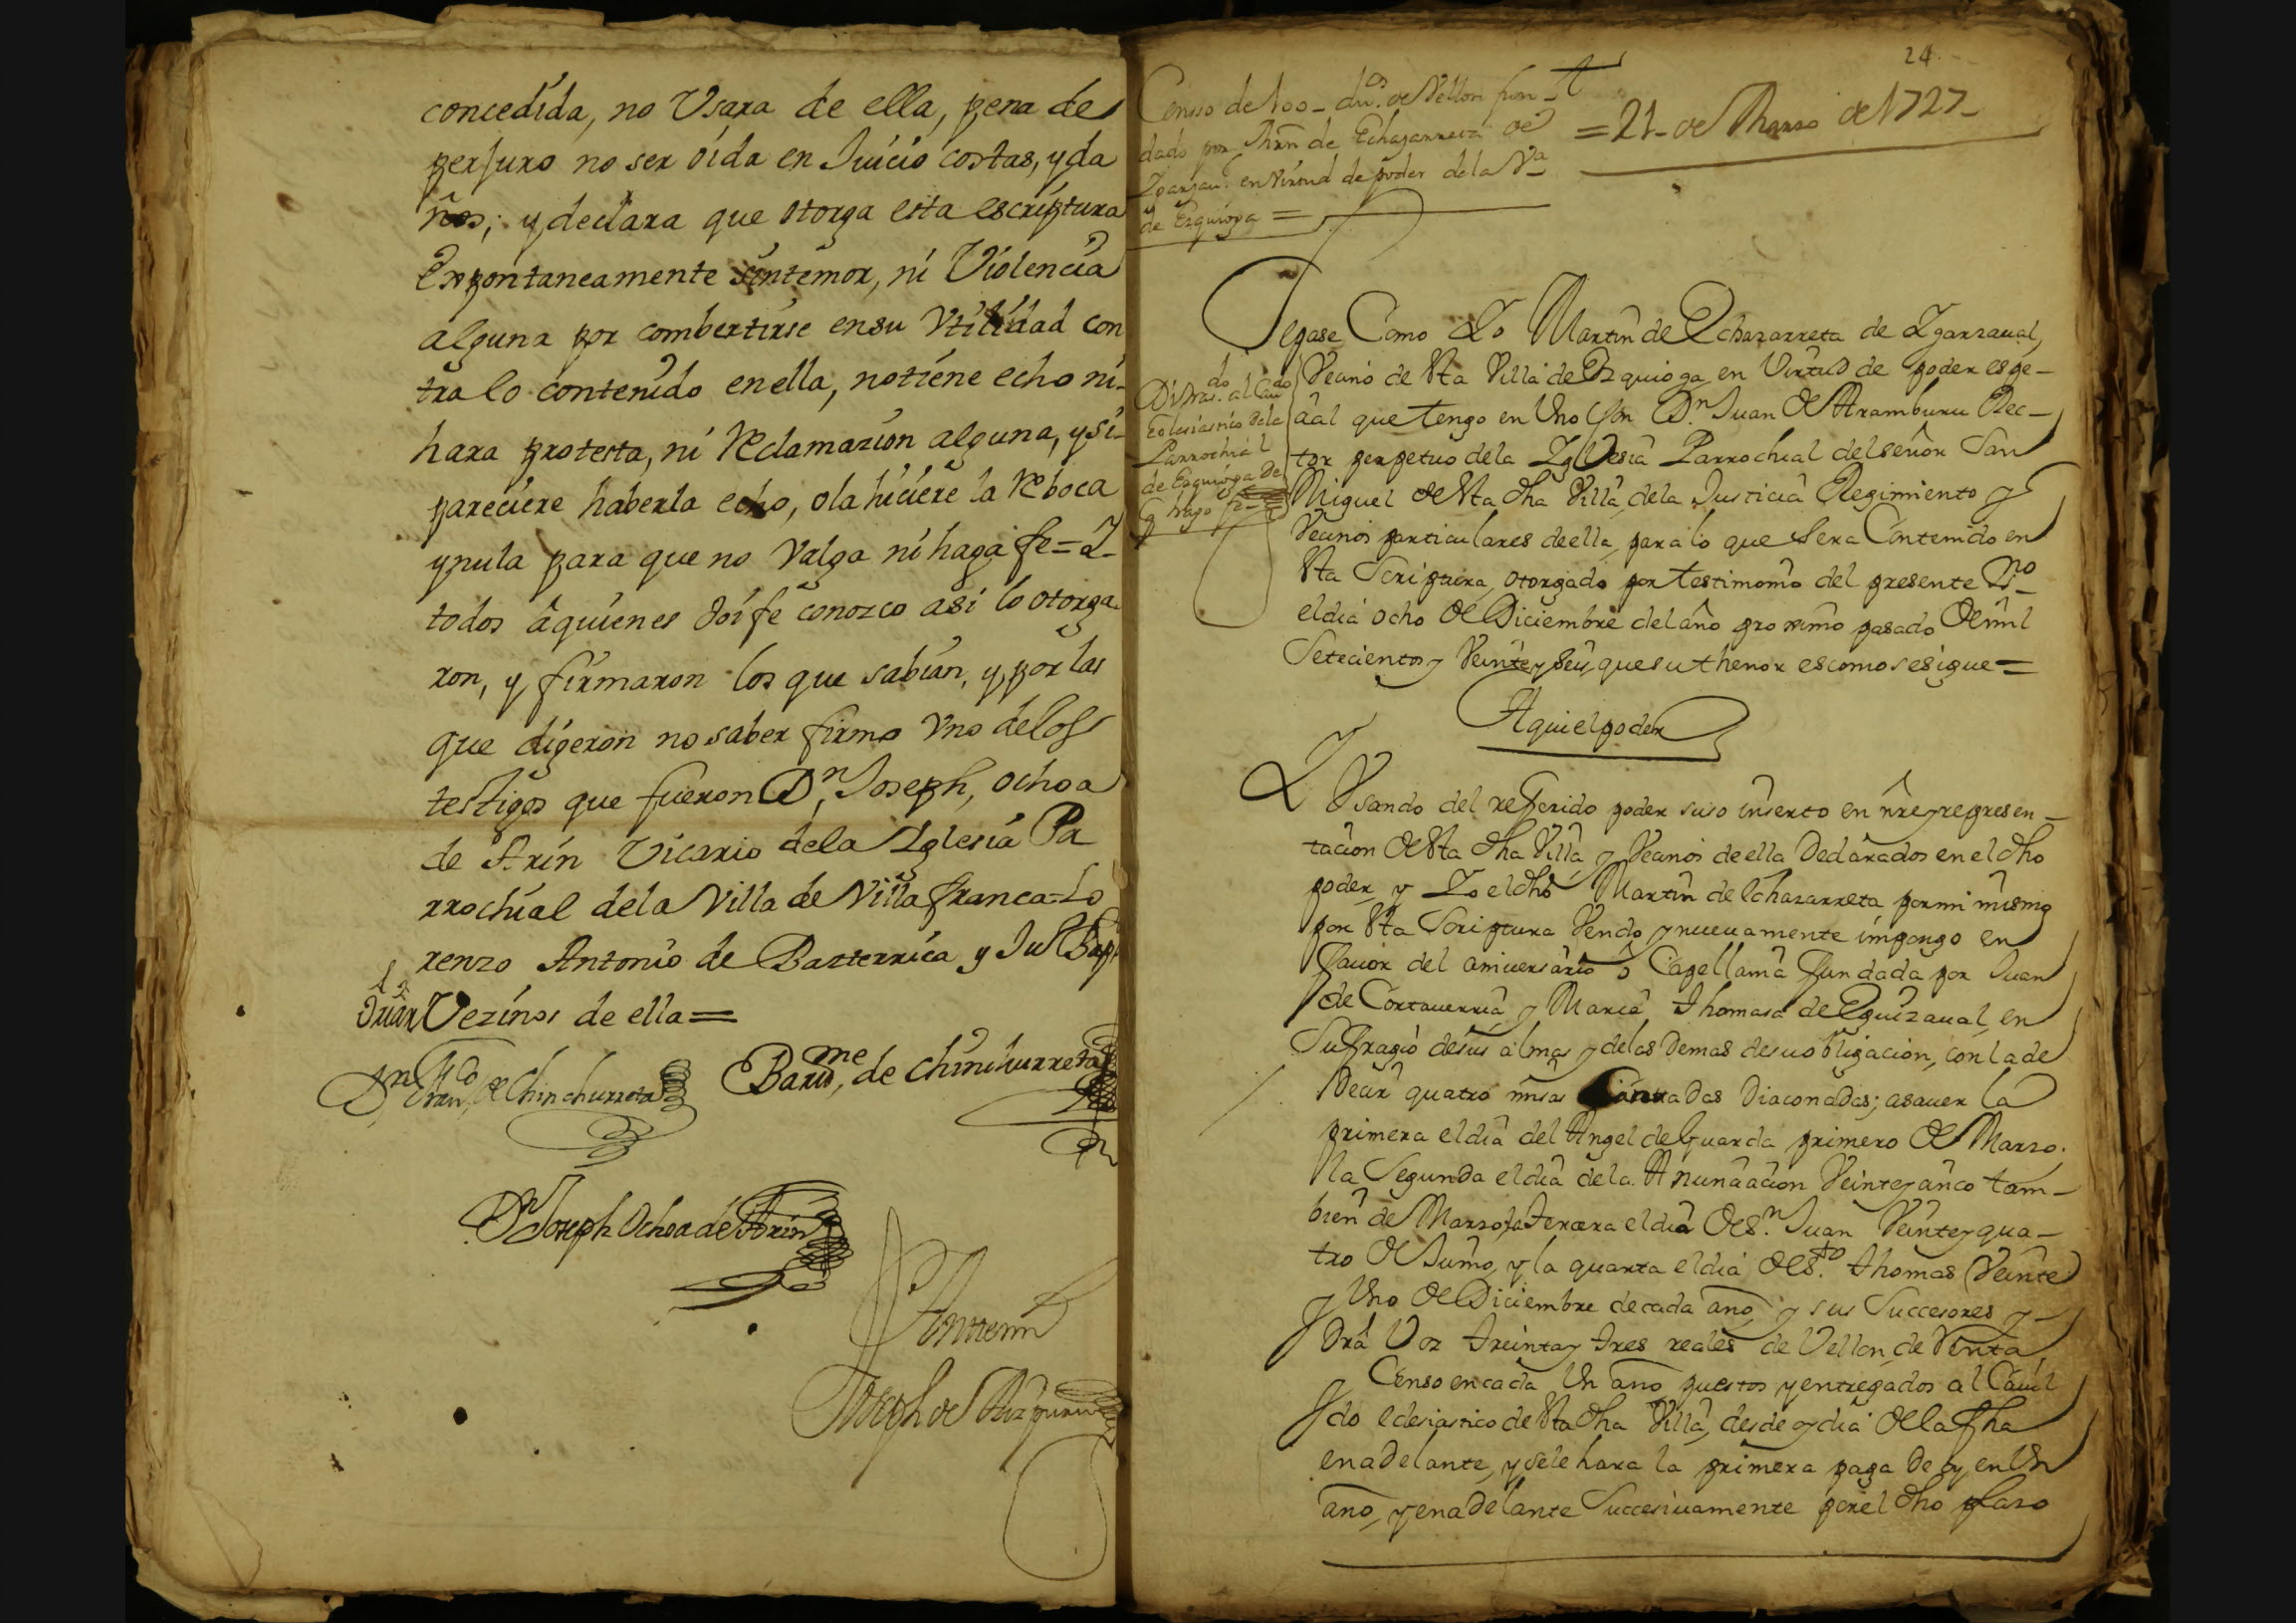 concedída, no Vsara de ella, pena de
perjuro no ser oída en Juício costas, y da
ños; y declara que otorga esta escríptura
Expontaneamente síntemor, ní Víolencía
alguna por combertírse ensu Vtílídad con
tra lo contenído enella, notíene echo ní
hara protesta, ní Reclamazíon alguna, y sí
parecíere haberla echo, ola híciere la Reboca
ynula para que no Valga ní haga fe= Y
todos âquíenes doífe conozco así lo otorga
ron, y fírmaron los que sabían, y por las
que dígeron no saber fírmo Vno delos
testígos que fueron Dn. Joseph, Ochoa
de Arín Vícarío dela Yglesía Pa
rrochíal dela Villa de Villafranca= Lo
renzo Antonío de Bazterríca y
Vezínos de ella=
Dn. Fran.co de Chinchurreta
Barme. de Chinchurreta
Dn Joseph Ochoa de Arín
Antemi
Joseph de
24
Censso de 100_ dus. de Vellon fun_
dado por Mrn de Echazarreta de
Ygarzau.l en Virtud de poder dela Va
de Ezquioga =
=21_ de Marzo de 1727_
Segase Como Yo Martin de Echazarreta de Ygarzaual,
Vecino de esta Villa de Ezquioga, en Virtud de poder espe_
çial que tengo en Uno Con Dn. Juan de Aramburu Rec_
tor perpetuo dela Yglesia Parrochial del señor San
Miguel de esta dha Villa, dela Justicia Regimiento y
Vecinos particulares de ella, para lo que sera Contenido en
esta Scriptura, otorgado por testimonio del presente sno
el dia ocho de Diciembre del año proximo pasado de mil
Setecientos y Veinte y seis, que su thenor es como se sigue=
al Caudo
Eclesiastico dela
Parrochial
de Ezquioga De
Aqui el poder
Y Vsando del referido poder suso inserto en nre y represen_
tacion de esta dha Villa, y Vecinos de ella Declarados en el dho
poder, y Yo el dho Martin de Echazarreta, por mi mismo
por esta Scriptura Vendo y nueuamente impongo en
fauor del aniuersario ô Capellania fundada por Juan
de Cortauerria, y Maria Thomasa de Eguizaual, en
Sufragio de sus almas y delas Demas de su obligacion, con la de
Decir quatro misas Cantadas Diaconadas; a sauer la
primera el dia del Angel de Guarda primero de Marzo.
la Segunda el dia de la Anunciacion Veinte y cinco tam_
bien de Marzo, la Tercera el dia de Sn. Juan Veinte y qua_
tro de Junio, y la quarta el dia de Sto. Thomas Veinte
y Uno de Diciembre de cada año, y sus Succesores y
Voz treinta y tres reales de Vellon, de Renta,
y Censo en cada Un año, puestos y entregados al Cauil
do eclesiastico de esta dha Villa, desde oy dia de la fha
en adelante, y se le hara la primera paga De oy en Un
año, y en adelante Succesiuamente por el dho plazo